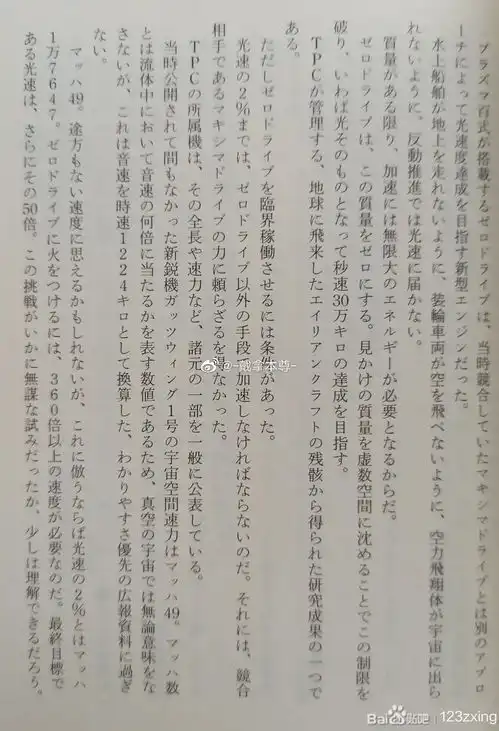 プラズマ百式が搭載するゼロドライブは、当時競合していたマキシマドライブとは別のアプロ
ーチによって光速度達成を目指す新型エンジンだった。
水上船舶が地上を走れないように、装輪車両が空を飛べないように、空力飛翔体が宇宙に出ら
れないように。反動推進では光速に届かない。
質量がある限り、加速には無限大のエネルギーが必要となるからだ。
ゼロドライブは、この質量をゼロにする。見かけの質量を虚数空間に沈めることでこの制限を
破り、いわば光そのものとなって秒速30万キロの達成を目指す。
TPCが管理する、地球に飛来したエイリアンクラフトの残骸から得られた研究成果の一つで
ある。
ただしゼロドライブを臨界稼働させるには条件があった。
光速の2%までは、ゼロドライブ以外の手段で加速しなければならないのだ。それには、競合
相手であるマキシマドライブの力に頼らざるを得なかった。
TPCの所属機は、その全長や速力など、諸元の一部を一般に公表している。
当時公開されて間もなかった新鋭機ガッツウィング1号の宇宙空間速力はマッハ49。マッハ数
とは流体中において音速の何倍に当たるかを表す数値であるため、真空の宇宙では無論意味をな
さないが、これは音速を時速1224キロとして換算した、わかりやすさ優先の広報資料に過ぎ
ない。
マッハ49。途方もない速度に思えるかもしれないが、これに倣うならば光速の2%とはマッハ
1万7647。ゼロドライブに火をつけるには、360倍以上の速度が必要なのだ。最終目標で
ある光速は、さらにその50倍。この挑戦がいかに無謀な試みだったか、少しは理解できるだろう。
@一戴拿本尊一
Baidu贴吧 | 123zxing